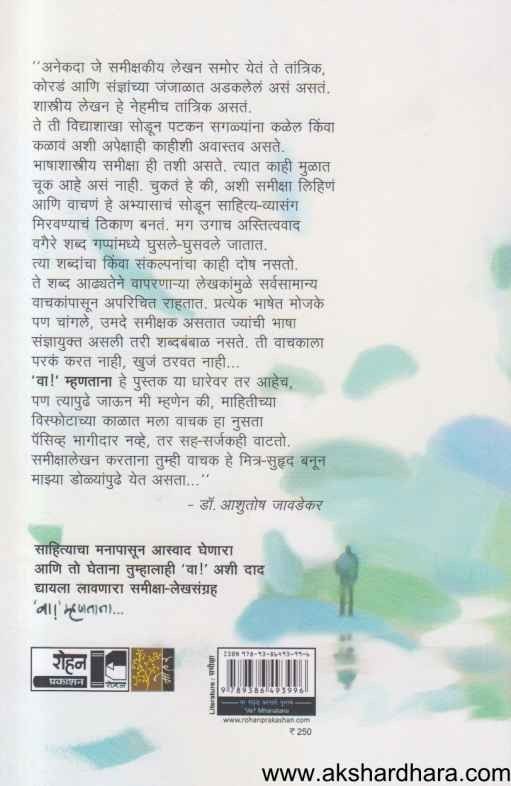 “अनेकदा जे समीक्षकीय लेखन समोर येतं ते तांत्रिक,
कोरडं आणि संज्ञांच्या जंजाळात अडकलेलं असं असतं.
शास्त्रीय लेखन हे नेहमीच तांत्रिक असतं.
ते ती विद्याशाखा सोडून पटकन सगळ्यांना कळेल किंवा
कळावं अशी अपेक्षाही काहीशी अवास्तव असते.
भाषाशास्त्रीय समीक्षा ही तशी असते. त्यात काही मुळात
चूक आहे असं नाही. चुकतं हे की, अशी समीक्षा लिहिणं
आणि वाचणं हे अभ्यासाचं सोडून साहित्य-व्यासंग
मिरवण्याचं ठिकाण बनतं. मग उगाच अस्तित्ववाद
वगैरे शब्द गप्पांमध्ये घुसले-घुसवले जातात.
त्या शब्दांचा किंवा संकल्पनांचा काही दोष नसतो.
ते शब्द आढ्यतेने वापरणाऱ्या लेखकांमुळे सर्वसामान्य
वाचकांपासून अपरिचित राहतात. प्रत्येक भाषेत मोजके
पण चांगले, उमदे समीक्षक असतात ज्यांची भाषा
संज्ञायुक्त असली तरी शब्दबंबाळ नसते. ती वाचकाला
परकं करत नाही, खुजं ठरवत नाही...
‘वा!’ म्हणताना हे पुस्तक या धारेवर तर आहेच,
पण त्यापुढे जाऊन मी म्हणेन की, माहितीच्या
विस्फोटाच्या काळात मला वाचक हा नुसता
पॅसिव्ह भागीदार नव्हे, तर सह-सर्जकही वाटतो.
समीक्षालेखन करताना तुम्ही वाचक हे मित्र-सुहृद बनून
माझ्या डोळ्यांपुढे येत असता...”
- डॉ. आशुतोष जावडेकर
साहित्याचा मनापासून आस्वाद घेणारा
आणि तो घेताना तुम्हालाही ‘वा!’ अशी दाद
द्यायला लावणारा समीक्षा-लेखसंग्रह
‘वा!’ म्हणताना...
रोहन
प्रकाशन
Literature : समीक्षा
ISBN 978-93-86493-99-6
9789386493996
'Va!' Mhanatana
www.rohanprakashan.com
₹ 250
www.akshardhara.com